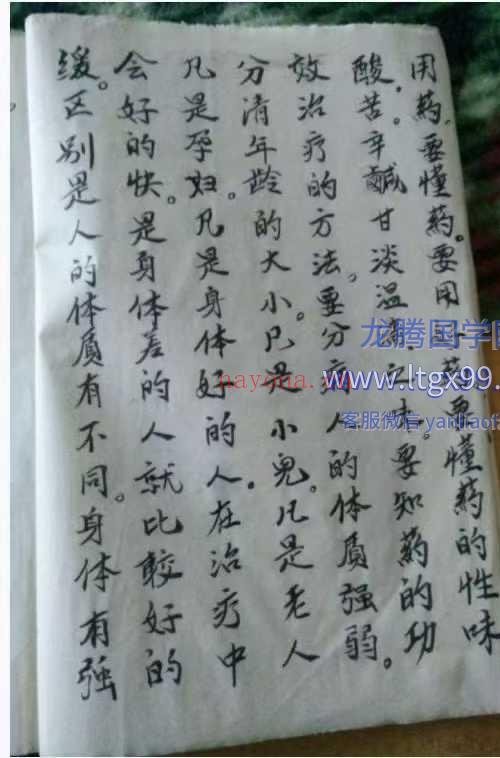 用药。要懂药。要用药。要懂药的性味
酸。苦。辛鹹甘淡温 要知药的功
效治疗的方法。要分病人的体质强弱。
分清年龄的大小。凡是小儿。凡是老人
凡是孕妇。凡是身体好的人。在治疗中
会好的快。是身体差的人就比较好的
缓。区别是人的体质有不同。身体有强
龙腾国学
nayona.
www.ltgx99.
客服微信 yanliaofa